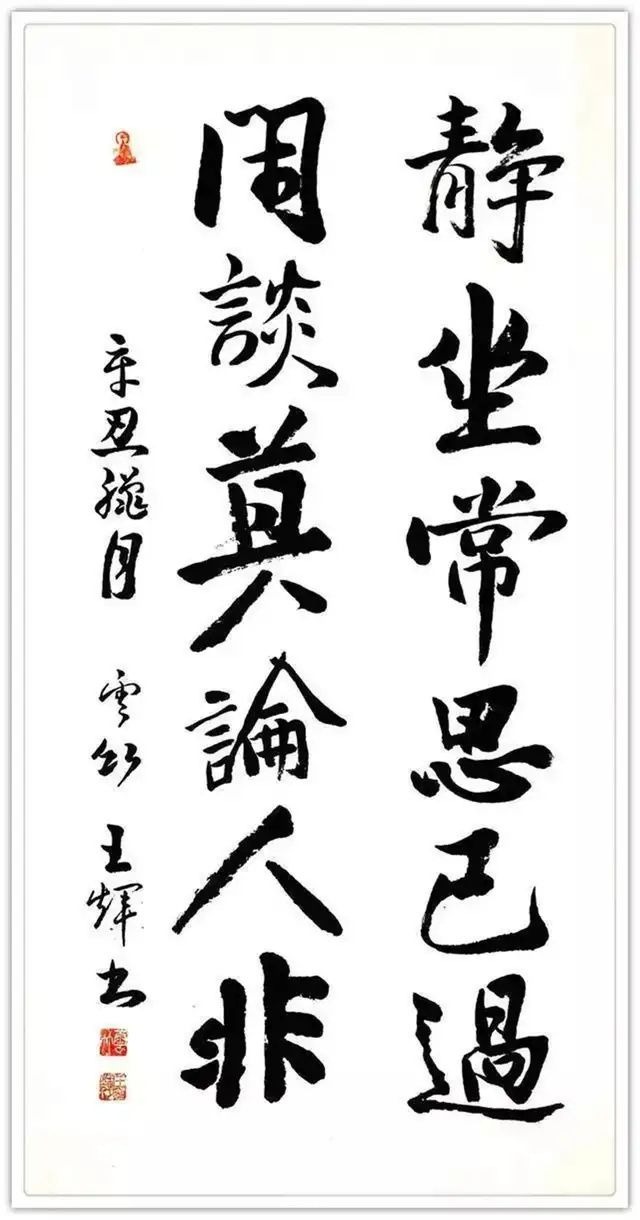 静坐常思己過
閑談莫論人非
辛丑臘月 雲竹 王輝書